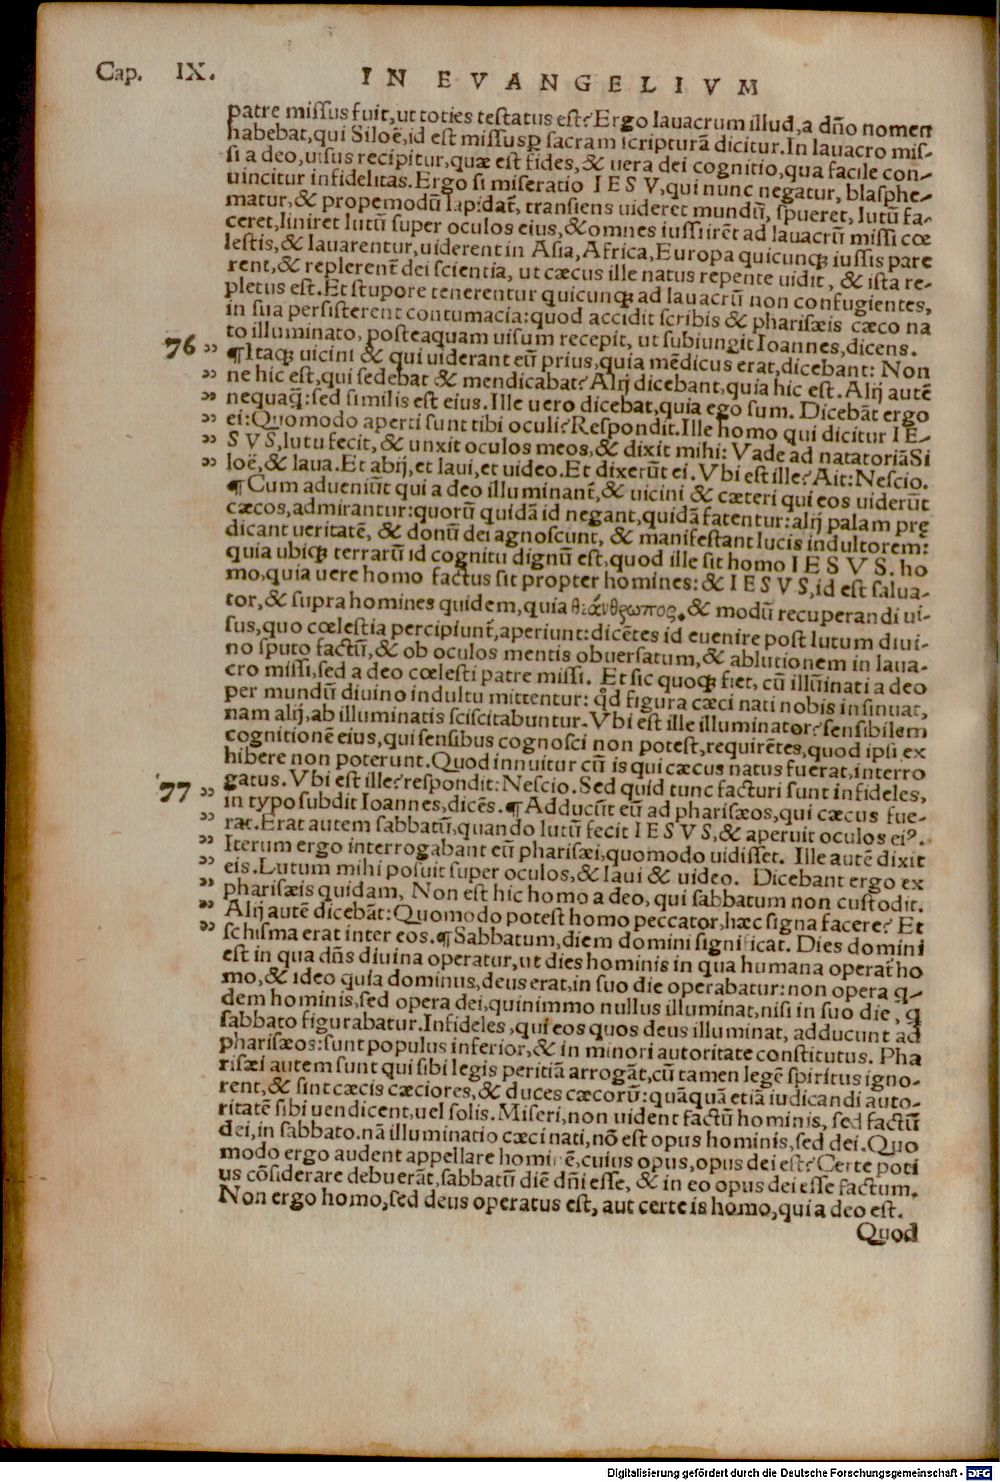 Cap. IX. IN EVANGELIVM
patre miſſus fuit, ut toties teſtatus eſt? Ergo lauacrum illud, a dño nomen
habebat, qui Siloẽ, id eſt miſſus ꝑ ſacram ſcripturã dicitur. In lauacro miſ-
ſi a deo, uiſus recipitur, quæ eſt fides, & uera dei cognitio, qua facile con-
uincitur infidelitas. Ergo ſi miſeratio IESV, qui nunc negatur, blaſphe-
matur, & propemodũ lapidat̃, tranſiens uideret mundũ, ſpueret, lutũ fa-
ceret, liniret lutũ ſuper oculos eius, & omnes iuſſi irẽt ad lauacrũ miſſi cœ
leſtis, & lauarentur, uiderent in Aſia, Africa, Europa quicunqꝫ iuſſis pare
rent, & replerent̃ dei ſcientia, ut cæcus ille natus repente uidit, & iſta re-
pletus eſt. Et ſtupore tenerentur quicunqꝫ ad lauacrũ non confugientes,
in ſua perſiſterent contumacia: quod accidit ſcribis & phariſæis cæco na
to illuminato, poſteaquam uiſum recepit, ut ſubiungit Ioannes, dicens.
76 ” ¶ Itaqꝫ uicini & qui uiderant eũ prius, quia mẽdicus erat, dicebant: Non
” ne hic eſt, qui ſedebat & mendicabat? Alij dicebant, quia hic eſt. Alij autẽ
” nequaq̃: ſed ſimilis eſt eius. Ille uero dicebat, quia ego ſum. Dicebãt ergo
” ei: Quomodo aperti ſunt tibi oculi? Reſpondit. Ille homo qui dicitur IE-
” SVS, lutũ fecit, & unxit oculos meos, & dixit mihi: Vade ad natatoriã Si
” loẽ, & laua. Et abij, et laui, et uideo. Et dixerũt ei. Vbi eſt ille? Ait: Neſcio.
¶ Cum adueniũt qui a deo illuminant̃, & uicini & cæteri qui eos uiderũt
cæcos, admirantur: quorũ quidã id negant, quidã fatentur: alij palam prę
dicant ueritatẽ, & donũ dei agnoſcunt, & manifeſtant lucis indultorem:
quia ubiqꝫ terrarũ id cognitu dignũ eſt, quod ille ſit homo IESVS. ho
mo, quia uere homo factus ſit propter homines: & IESVS, id eſt ſalua-
tor, & ſupra homines quidem, quia θεάνθρωπος. & modũ recuperandi ui-
ſus, quo cœleſtia percipiunt̃, aperiunt: dicẽtes id euenire poſt lutum diui-
no ſputo factũ, & ob oculos mentis obuerſatum, & ablutionem in laua-
cro miſſi, ſed a deo cœleſti patre miſſi. Et ſic quoqꝫ fiet, cũ illũinati a deo
per mundũ diuino indultu mittentur: qd̃ figura cæci nati nobis inſinuat,
nam alij, ab illuminatis ſciſcitabuntur. Vbi eſt ille illuminator? ſenſibilem
cognitionẽ eius, qui ſenſibus cognoſci non poteſt, requirẽtes, quod ipſi ex
hibere non poterunt. Quod innuitur cũ is qui cæcus natus fuerat, interro
gatus. Vbi eſt ille? reſpondit: Neſcio. Sed quid tunc facturi ſunt infideles,
77 ” in typo ſubdit Ioannes, dicẽs. ¶ Adducũt eũ ad phariſæos, qui cæcus fue-
” rat. Erat autem ſabbatũ, quando lutũ fecit IESVS, & aperuit oculos ei⁹.
” Iterum ergo interrogabant eũ phariſæi, quomodo uidiſſet. Ille autẽ dixit
” eis. Lutum mihi poſuit ſuper oculos, & laui & uideo. Dicebant ergo ex
” phariſæis quidam, Non eſt hic homo a deo, qui ſabbatum non cuſtodit.
” Alij autẽ dicebãt: Quomodo poteſt homo peccator, hæc ſigna facere? Et
” ſchiſma erat inter eos. ¶ Sabbatum, diem domini ſignificat. Dies domini
eſt in qua dñs diuina operatur, ut dies hominis in qua humana operat̃ ho
mo, & ideo quia dominus, deus erat, in ſuo die operabatur: non opera q-
dem hominis, ſed opera dei, quinimmo nullus illuminat, niſi in ſuo die, q
ſabbato figurabatur. Infideles, qui eos quos deus illuminat, adducunt ad
phariſæos: ſunt populus inferior, & in minori autoritate conſtitutus. Pha
riſæi autem ſunt qui ſibi legis peritiã arrogãt, cũ tamen legẽ ſpiritus igno-
rent, & ſint cæcis cæciores, & duces cæcorũ: quãquã etiã iudicandi auto-
ritatẽ ſibi uendicent, uel ſolis. Miſeri, non uident factũ hominis, ſed factũ
dei, in ſabbato. nã illuminatio cæci nati, nõ eſt opus hominis, ſed dei. Quo
modo ergo audent appellare hominẽ, cuius opus, opus dei eſt? Certe poti
us cõſiderare debuerãt, ſabbatũ diẽ dñi eſſe, & in eo opus dei eſſe factum.
Non ergo homo, ſed deus operatus eſt, aut certe is homo, qui a deo eſt.
Quod
Digitalisierung gefördert durch die Deutsche Forschungsgemeinschaft - DFG